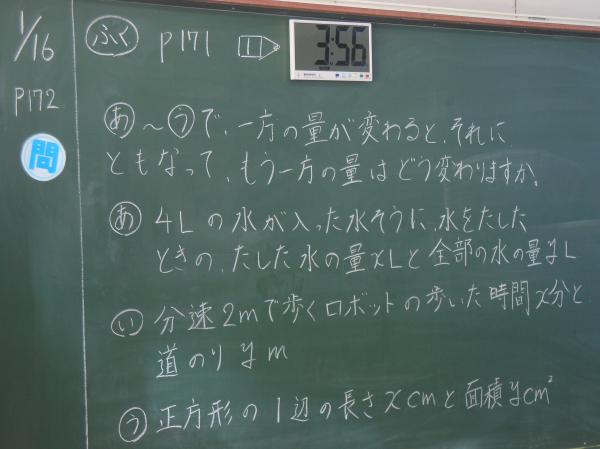 1/16
P172
問
ふく P171 1
3:56
あ～うで、一方の量が変わると、それに
ともなって、もう一方の量はどう変わりますか。
あ 4Lの水が入った水そうに、水をたした
ときの、たした水の量xLと全部の水の量yL
い 分速2mで歩くロボットの歩いた時間x分と
道のりym
う 正方形の1辺の長さxcmと面積ycm²